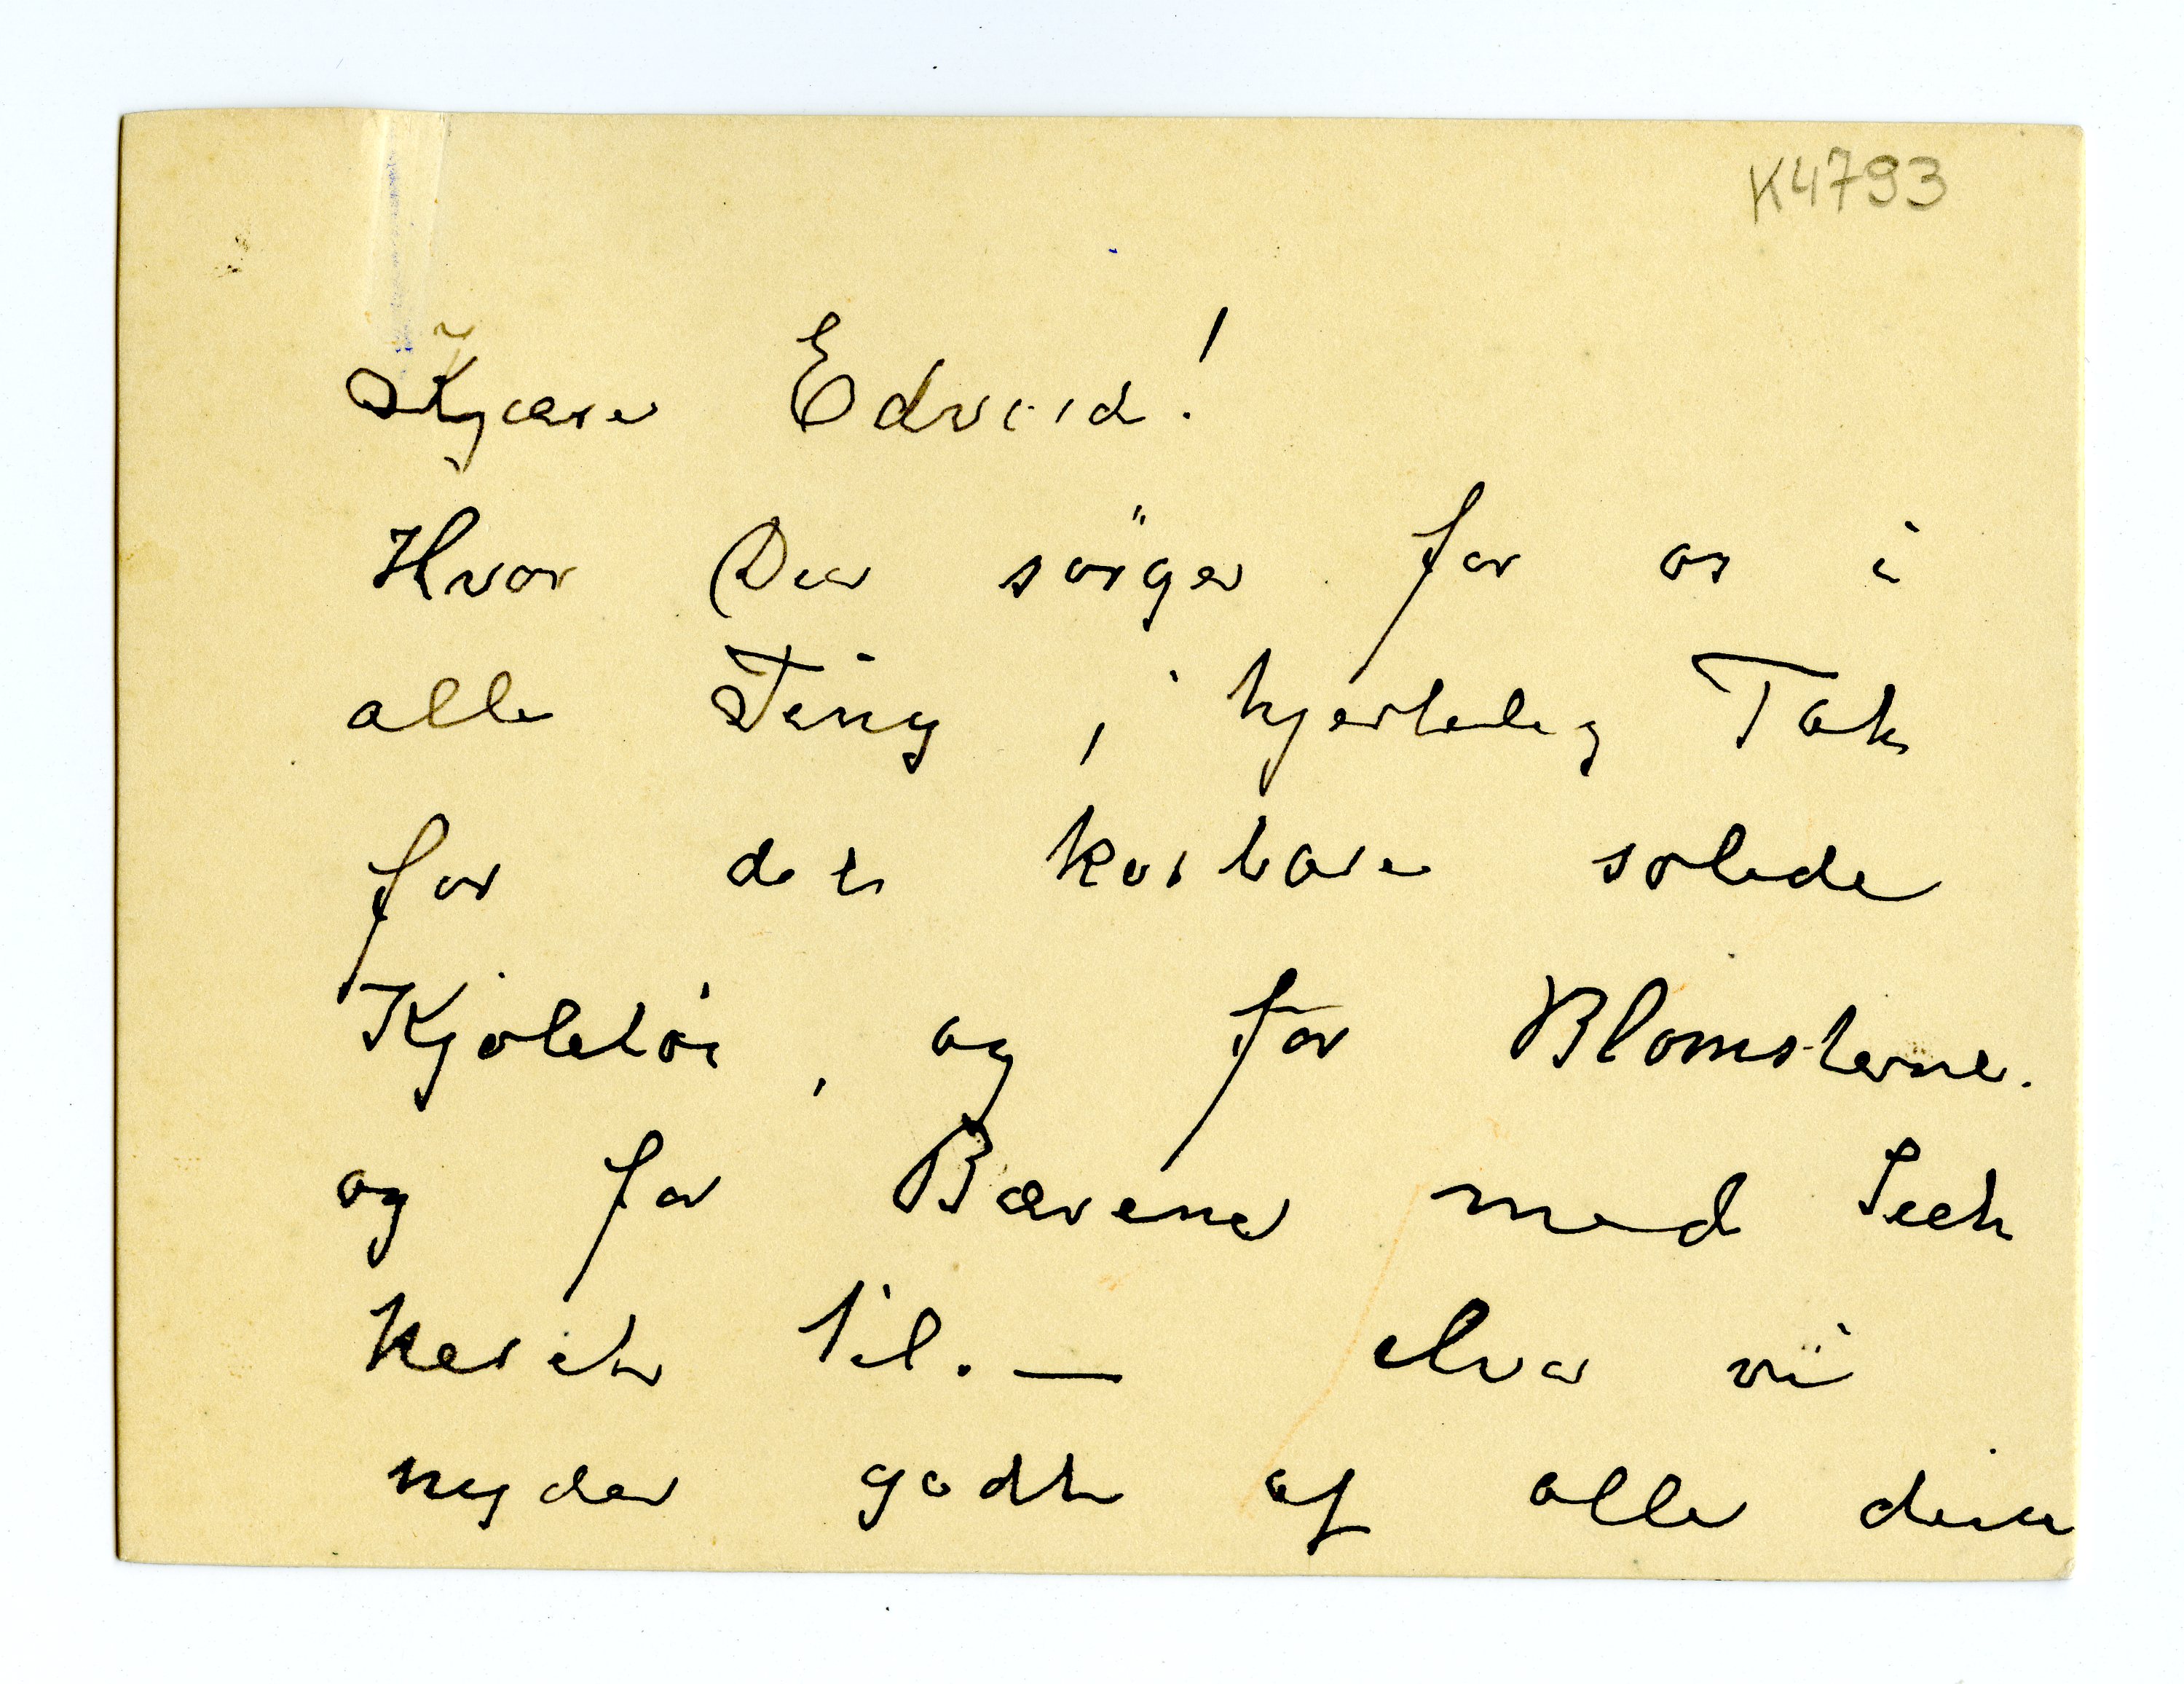 K4793
Kjære Edvard!
Hvor Du sörger for os i
alle Ting, hjertelig Tak
for det kostbare solide
Kjoletöi, og for Blomsterne.
og for Bærene med
til. — vi
nyder godt af alle dine